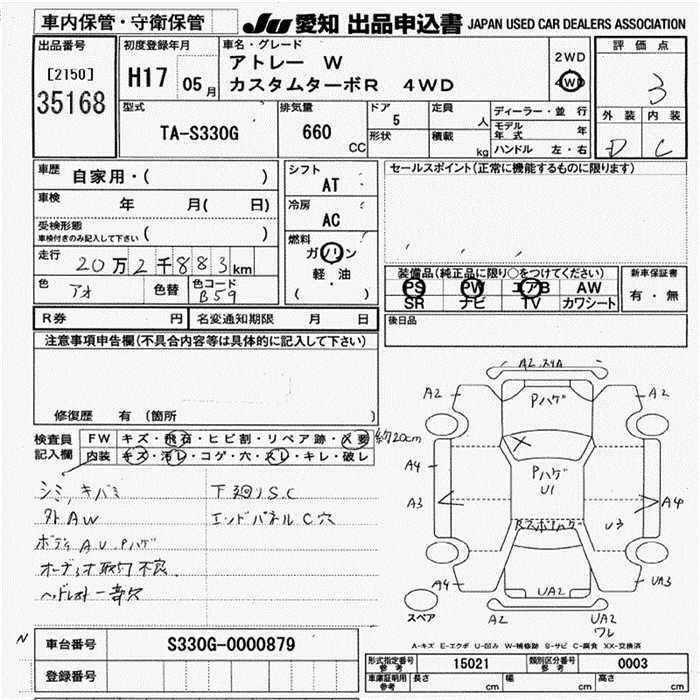 車内保管・守衛保管
JU 愛知 出品申込書 JAPAN USED CAR DEALERS ASSOCIATION
出品番号
[2150]
35168
初度登録年月
H17 05月
車名・グレード
アトレー W
カスタムターボR 4WD
2WD
4WD
評価点
3
外装 内装
D C
型式
TA-S330G
排気量
660
CC
ドア
5
形状
定員
人
積載
kg
ディーラー・並行
モデル年式
ハンドル 左・右
車歴
自家用・( )
車検
年 月( 日)
受検形態
車検付きのみ記入して下さい ( )
走行
20万2千883km
色
アオ
色替
色コード
B59
シフト
AT
冷房
AC
燃料
ガソリン
軽・油
( )
セールスポイント(正常に機能するものに限ります)
装備品(純正品に限り○をつけてください)
PS PW エアB AW
SR ナビ TV カワシート
新車保証書
有・無
後日品
R券 円
名変通知期限 月 日
注意事項申告欄(不具合内容等は具体的に記入して下さい)
修復歴 有(箇所 )
検査員
記入欄
FW キズ・飛石・ヒビ割・リペア跡・X要 約20cm
内装 キズ・汚レ・コゲ・穴・スレ・キレ・破レ
シミ、キバミ
外AW
ボディAU Pハゲ
オーディオ取付不良
ヘッドレスト一部穴
下廻りS.C
エンドパネルC穴
A2 スリA
A2
Pハゲ
A2
A4
Pハゲ
U1
A3
A4
U3
A4
UA2
UA3
スペア
A2
UA2
ワレ
A-キズ E-エクボ U-凹み W-補修跡 S-サビ C-腐食 XX-交換済
N
車台番号
S330G-0000879
登録番号
形式指定番号
参考
15021
類別区分番号
参考
0003
車庫証明用
参考
長さ cm
幅 cm
高さ cm